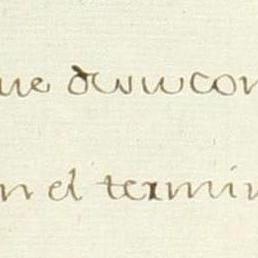 ue de su con
n el termin